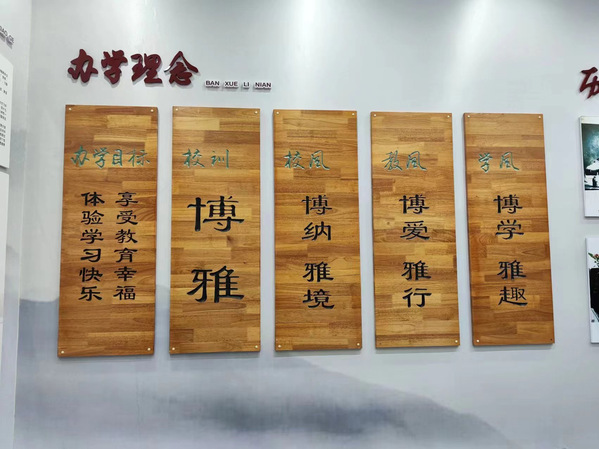 办学理念
BAN XUE LI NIAN
办学目标
享受教育幸福
体验学习快乐
校训
博雅
校风
博纳 雅境
教风
博爱 雅行
学风
博学 雅趣